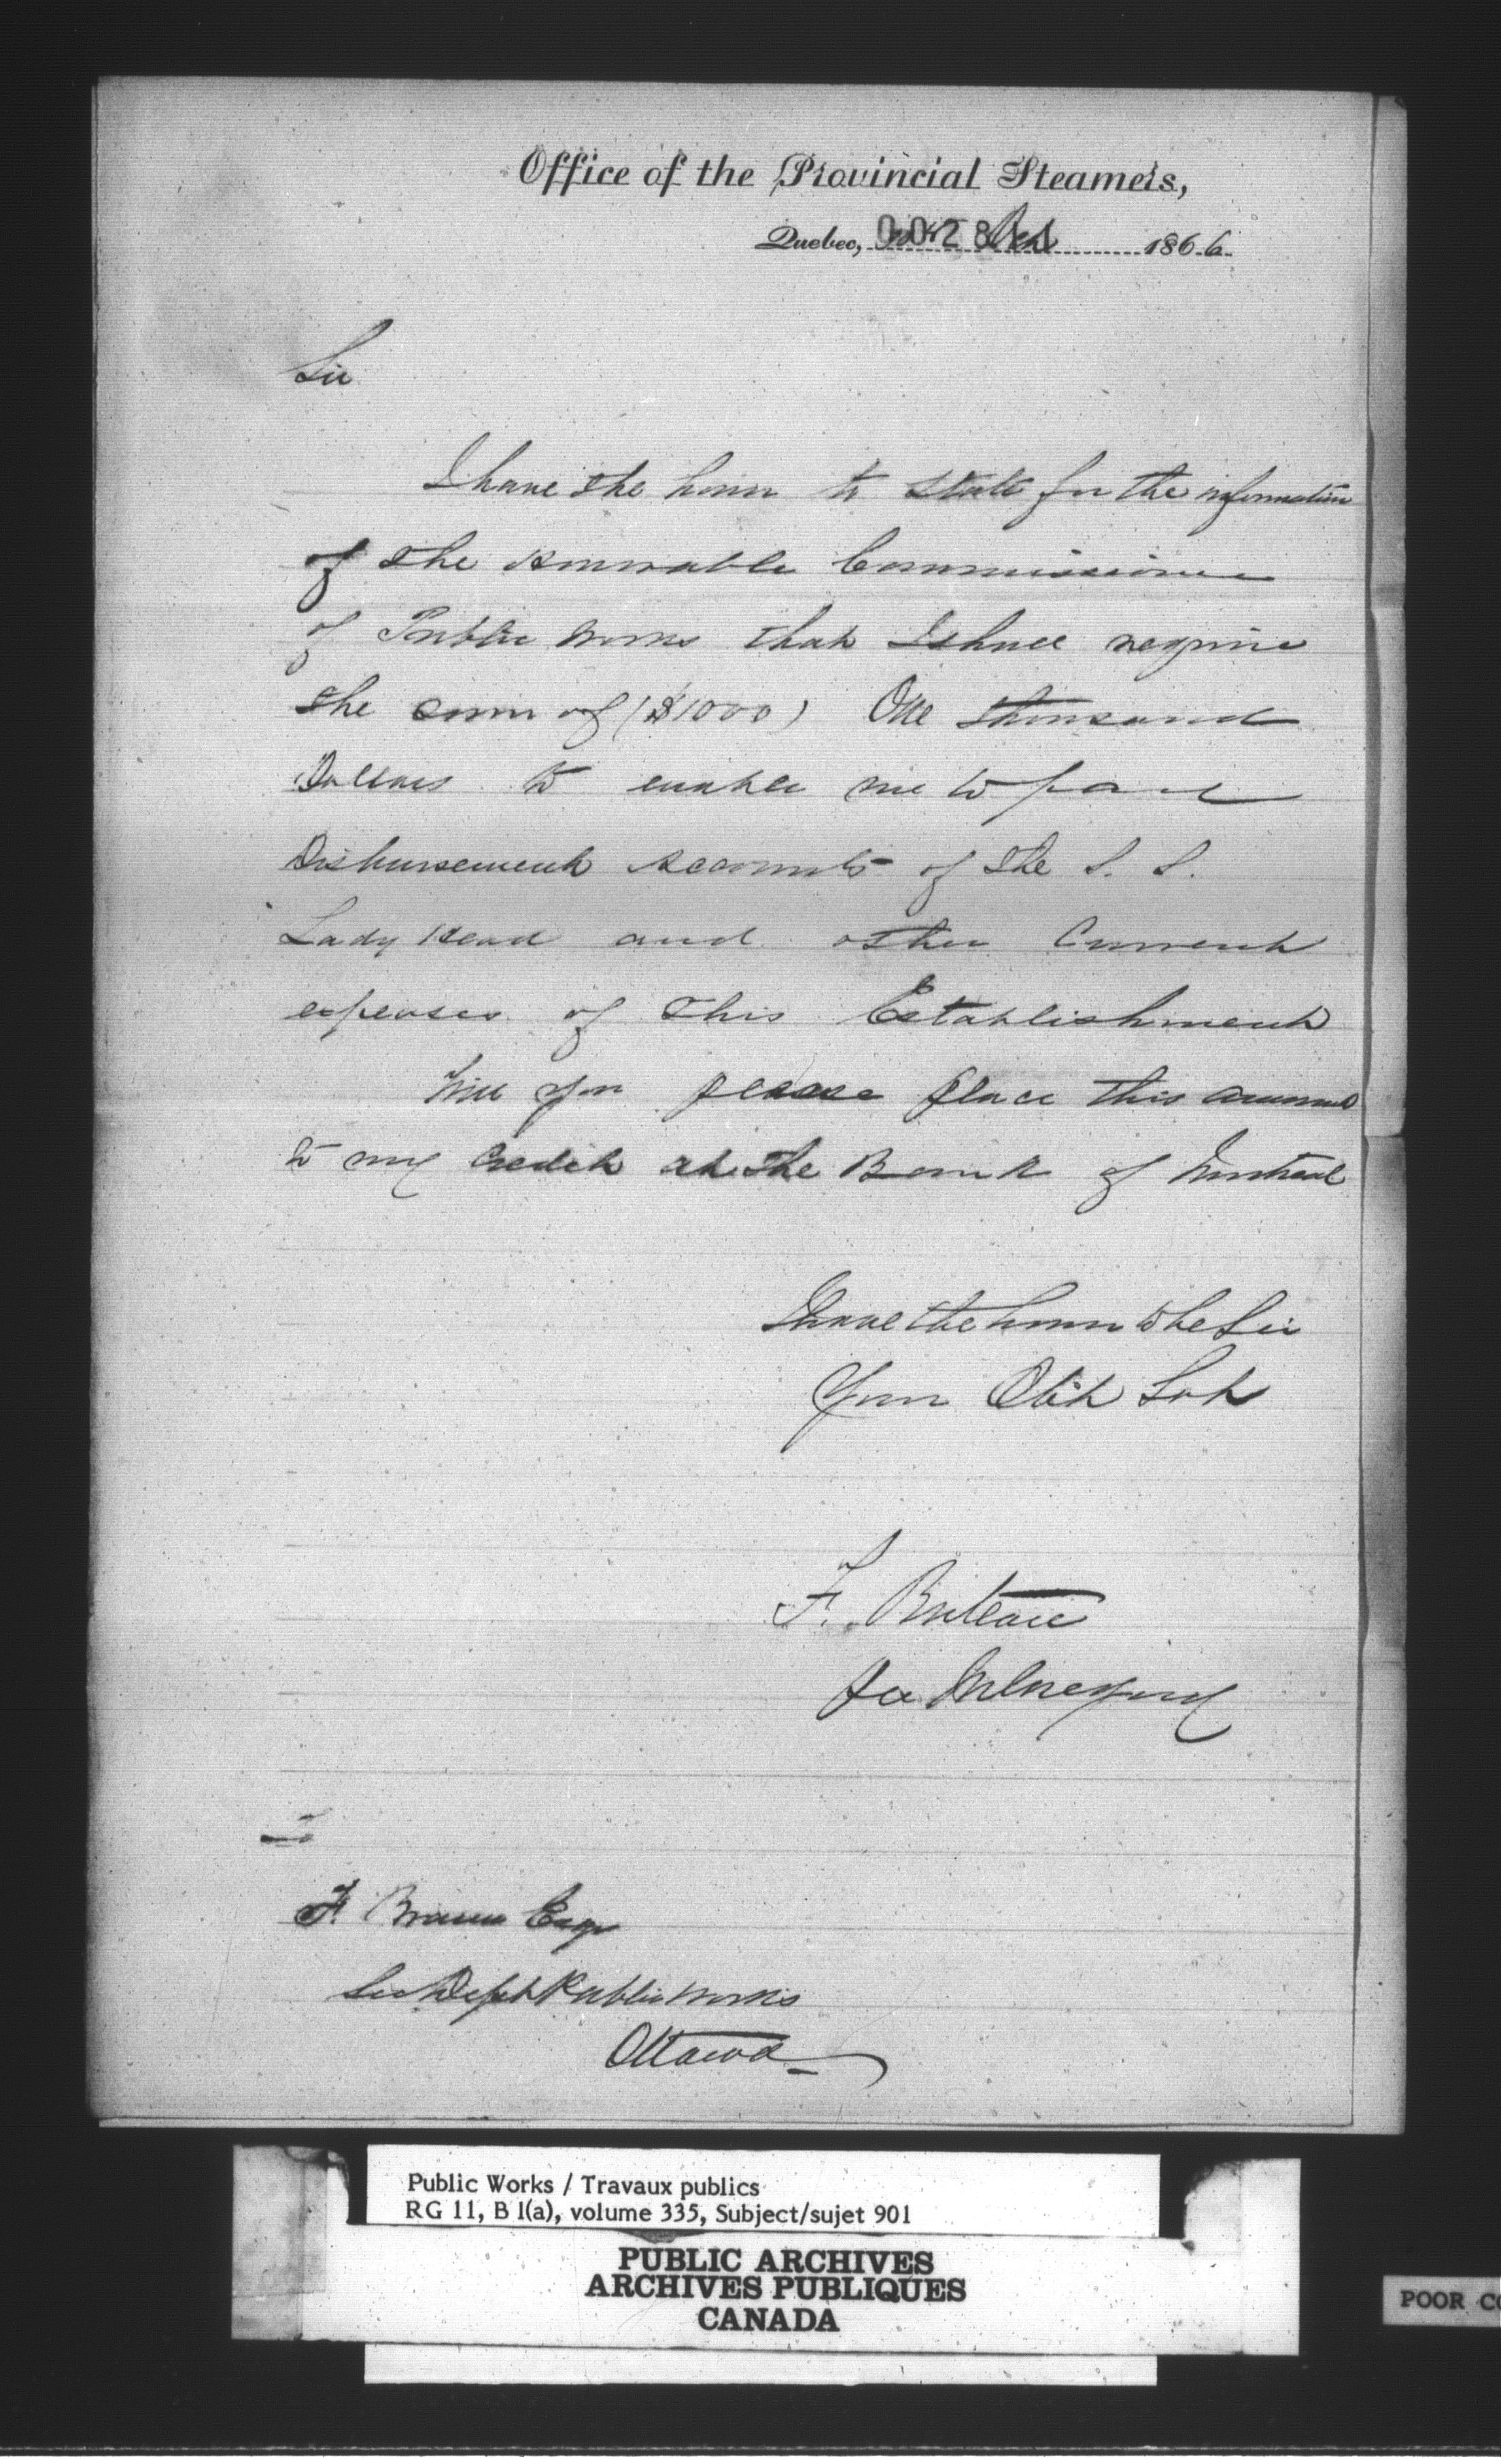 Office of the Provincial Steamers,
Quebec, 1866
Sir
I have the honor to state for the information
of the Honorable Commissioner
of Public Works that I shall require
the sum of ($1000) One thousand
Dollars to enable me to
Disbursement Accounts of the S. S.
Lady Head and other Current
expenses of this Establishment
Will you please place this amount
to my Credit at the Bank of Montreal
I have the honor to be Sir
Your Obt Svt
F. Buteau
To
F. Braun Esqr
Sec Dept Public Works
Ottawa
Public Works / Travaux publics
RG 11, B 1(a), volume 335, Subject/sujet 901
PUBLIC ARCHIVES
ARCHIVES PUBLIQUES
CANADA
POOR